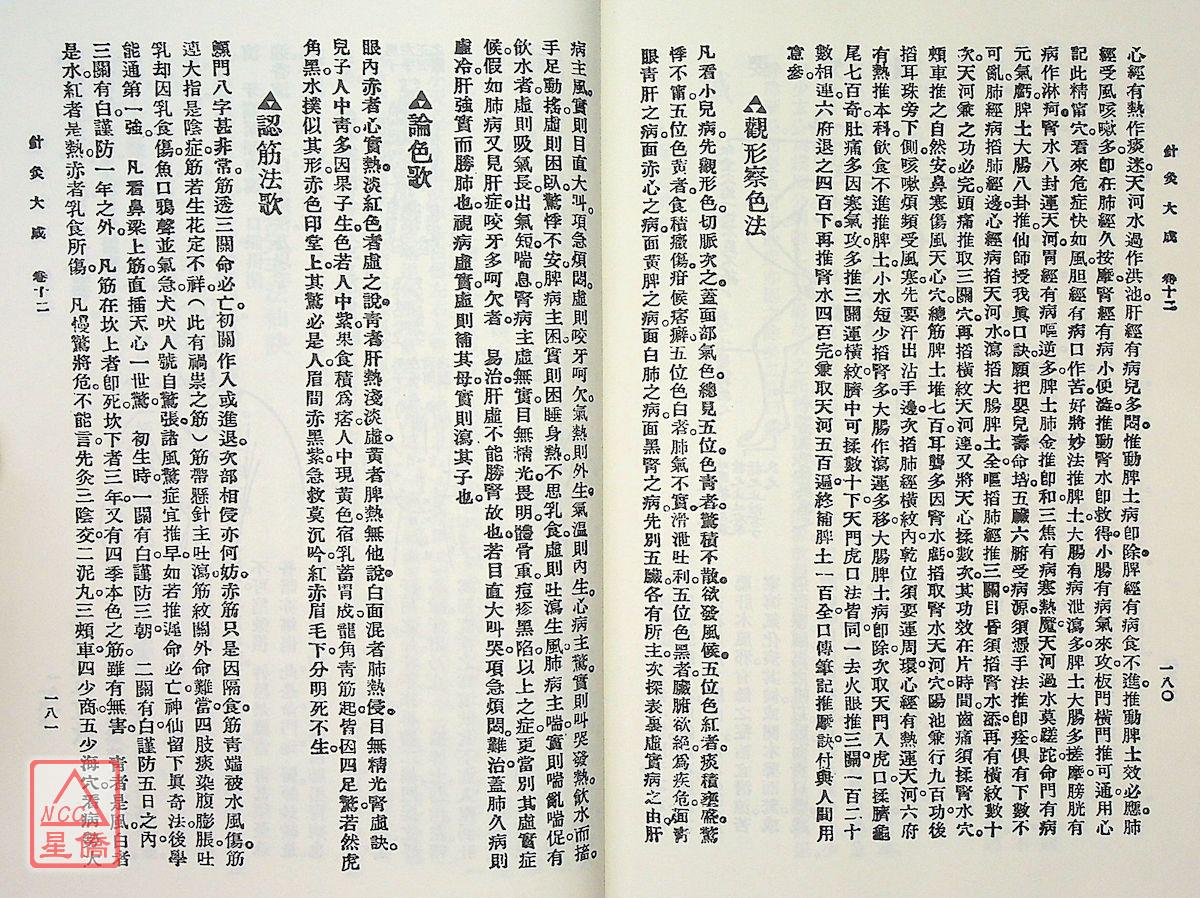 針灸大成 卷十二 一八〇
心經有熱作痰迷天河水過作洪池肝經有病兒多悶推動脾土病卽除脾經有病食不進推動脾土效必應肺
經受風咳嗽多卽在肺經久按摩腎經有病小便澁推動腎水卽救得小腸有病氣來攻板門橫門推可通用心
記此精甯穴看來危症快如風胆經有病口作苦好將妙法推脾土大腸有病泄瀉多脾土大腸多搓摩膀胱有
病作淋疴腎水八封運天河胃經有病嘔逆多脾土肺金推卽和三焦有病寒熱魔天河過水莫蹉跎命門有病
元氣虧脾土大腸八卦推仙師授我眞口訣願把嬰兒壽命培五臟六腑受病源須憑手法推卽痊俱有下數不
可亂肺經病掐肺經邊心經病掐天河水瀉掐大腸脾土全嘔掐肺經推三關目昏須掐腎水添再有橫紋數十
次天河兼之功必完頭痛推取三關穴再掐橫紋天河連又將天心揉數次其功效在片時間齒痛須揉腎水穴
頰車推之自然安鼻寒傷風天心穴總筋脾土堆七百耳聾多因腎水虧掐取腎水天河穴陽池兼行九百功後
掐耳珠旁下側咳嗽煩頻受風寒先要汗出沾手邊次掐肺經橫紋內乾位須要運周環心經有熱運天河六府
有熱推本科飲食不進推脾土小水短少掐腎多大腸作瀉運多移大腸脾土病卽除次取天門入虎口揉臍龜
尾七百奇肚痛多因寒氣攻多推三關運橫紋臍中可揉數十下天門虎口法皆同一去火眼推三關一百二十
數相連六府退之四百下再推腎水四百完兼取天河五百遍終補脾土一百全口傳筆記推摩訣付與人間用
意參
觀形察色法
凡看小兒病先觀形色切脈次之蓋面部氣色總見五位色青者驚積不散欲發風候五位色紅者痰積壅盛驚
悸不甯五位色黃者食積癥傷疳候痞癖五位色白者肺氣不實滑泄吐利五位色黑者臟腑欲絕爲疾危面青
眼青肝之病面赤心之病面黃脾之病面白肺之病面黑腎之病先別五臟各有所主次探表裏虛實病之由肝
病主風實則目直大叫項急煩悶虛則咬牙呵欠氣熱則外生氣溫則內生心病主驚實則叫哭發熱飲水而搐
手足動搖虛則困臥驚悸不安脾病主困實則困睡身熱不思乳食虛則吐瀉生風肺病主喘實則喘亂喘促有
飲水者虛則吸氣長出氣短喘息腎病主虛無實目無精光畏明體骨重痘疹黑陷以上之症更當別其虛實症
候假如肺病又見肝症咬牙多呵欠者 易治肝虛不能勝腎故也若目直大叫哭項急煩悶難治蓋肺久病則
虛冷肝強實而勝肺也視病虛實虛則補其母實則瀉其子也
論色歌
眼內赤者心實熱淡紅色者虛之說青者肝熱淺淡虛黃者脾熱無他說白面混者肺熱侵目無精光腎虛訣
兒子人中青多因果子生色若人中紫果食積爲痞人中現黃色宿乳蓄胃成龍角青筋起皆因四足驚若然虎
角黑水撲似其形赤色印堂上其驚必是人眉間赤黑紫急救莫沉吟紅赤眉毛下分明死不生
認筋法歌
顖門八字甚非常筋透三關命必亡初關作入或進退次部相侵亦何妨赤筋只是因隔食筋青端被水風傷筋
連大指是陰症筋若生花定不祥（此有禍祟之筋）筋帶懸針主吐瀉筋紋關外命難當四肢痰染腹膨脹吐
乳却因乳食傷魚口鴉聲並氣急犬吠人號自驚張諸風驚症宜推早如若推遲命必亡神仙留下眞奇法後學
能通第一強 凡看鼻梁上筋直插天心一世驚 初生時一關有白謹防三朝 二關有白謹防五日之內
三關有白謹防一年之外 凡筋在坎上者卽死坎下者三年又有四季本色之筋雖有無害 青者是風白者
是水紅者是熱赤者乳食所傷 凡慢驚將危不能言先灸三陰交二泥丸三頰車四少商五少海穴看病勢大
針灸大成 卷十二 一八一
NCC
星僑